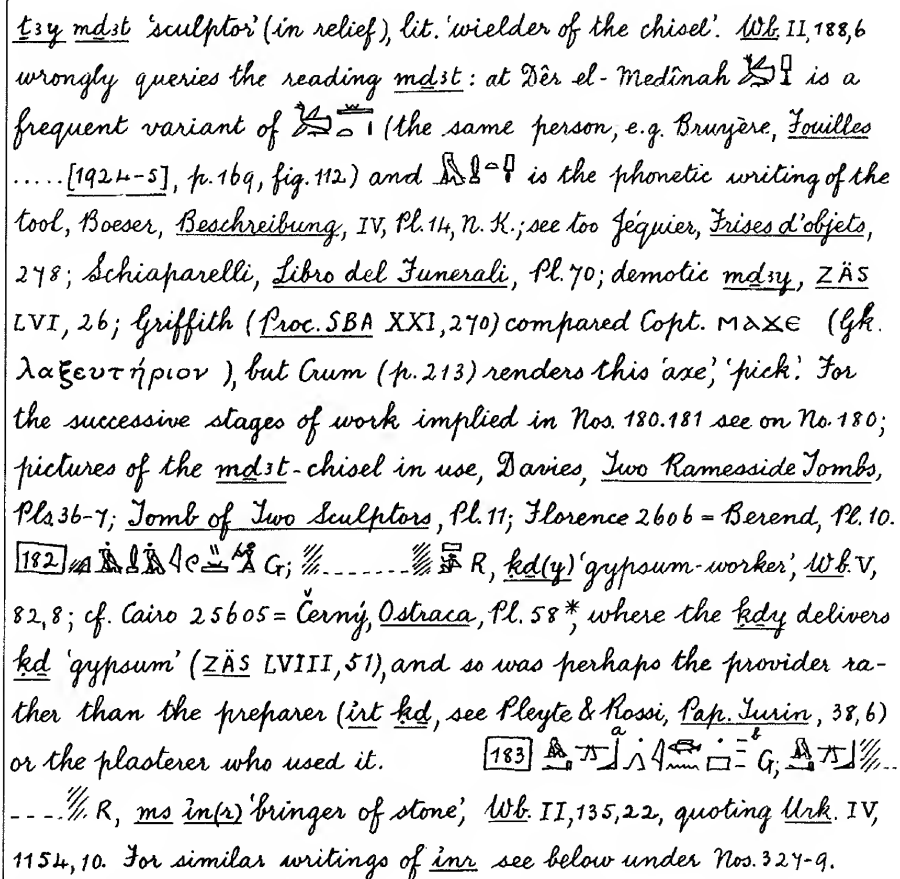 ṯꜣy mḏꜣt 'sculptor' (in relief), lit. 'wielder of the chisel'. Wb. II, 188, 6
wrongly queries the reading mḏꜣt: at Dêr el-Medînah is a
frequent variant of (the same person, e.g. Bruyère, Fouilles
..... [1924-5], p. 169, fig. 112) and is the phonetic writing of the
tool, Boeser, Beschreibung, IV, Pl. 14, N. K.; see too Jéquier, Frises d'objets,
278; Schiaparelli, Libro del Funerali, Pl. 70; demotic mḏꜣy, ZÄS
LVI, 26; Griffith (Proc. SBA XXI, 270) compared Copt. ⲙⲁϫⲉ (Gk.
λαξευτήριον), but Crum (p. 213) renders this 'axe', 'pick'. For
the successive stages of work implied in Nos. 180.181 see on No. 180;
pictures of the mḏꜣt-chisel in use, Davies, Two Ramesside Tombs,
Pls. 36-7; Tomb of Two Sculptors, Pl. 11; Florence 2606 = Berend, Pl. 10.
182 G; ........ R, ḳd(y) 'gypsum-worker', Wb. V,
82, 8; cf. Cairo 25605 = Černý, Ostraca, Pl. 58*, where the ḳdy delivers
ḳd 'gypsum' (ZÄS LVIII, 51), and so was perhaps the provider ra-
ther than the preparer (irt ḳd, see Pleyte & Rossi, Pap. Turin, 38, 6)
or the plasterer who used it. 183 a b G; --
---- R, ms in(r) 'bringer of stone', Wb. II, 135, 22, quoting Urk. IV,
1154, 10. For similar writings of inr see below under Nos. 327-9.